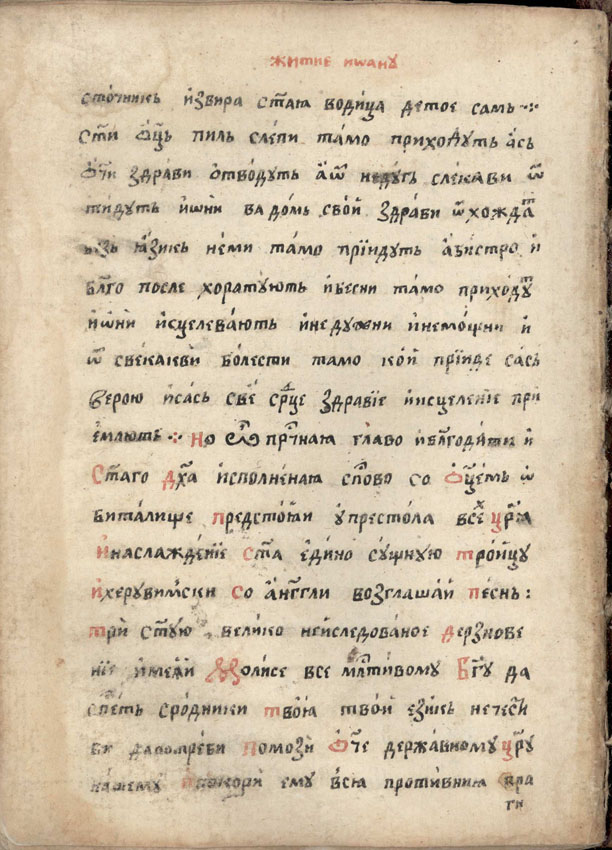 житие иѡану
сточникь извира стаа водица детое самь
сти ѡць пиль слепи тамо приходуть ась
ѡчи здрави отводуть аѿ недугь слекави ѿ
тидуть иѡни ва домь свои здрави ѿхождат
безь язикь неми тамо приидуть абистро и
благо после хоратують ибесни тамо приходут
иѡни исцелевають инедужни инемощни и
ѿ свекакви болести тамо кои прииде сась
верою исась све срце здравие иисцеление при
емлють но ѡ пр҃тнаа главо иблгодати и
Стаго дх҃а исполненаа слово со ѡцемь ѡ
биталище предстоай упрестола всех црѧ
инаслаждение ста едино сущную троицу
ихерувимски со англгли возглашай песнь:
три стую велико неиследованое дерзнове
ние имеяи Молисе все млтивому Бгу да
спеть сродники твоя твой езикь нечести
ви дапотреби помози Ѡче державному цру
нашему ипокори ему вся противния вра
ги